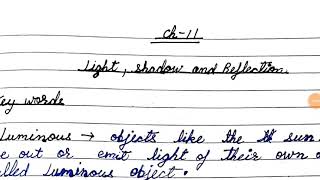 Ch-11
Light, Shadow and Reflection.
ey words
Luminous → objects like the sun
e out or emit light of their own a
lled Luminous object.